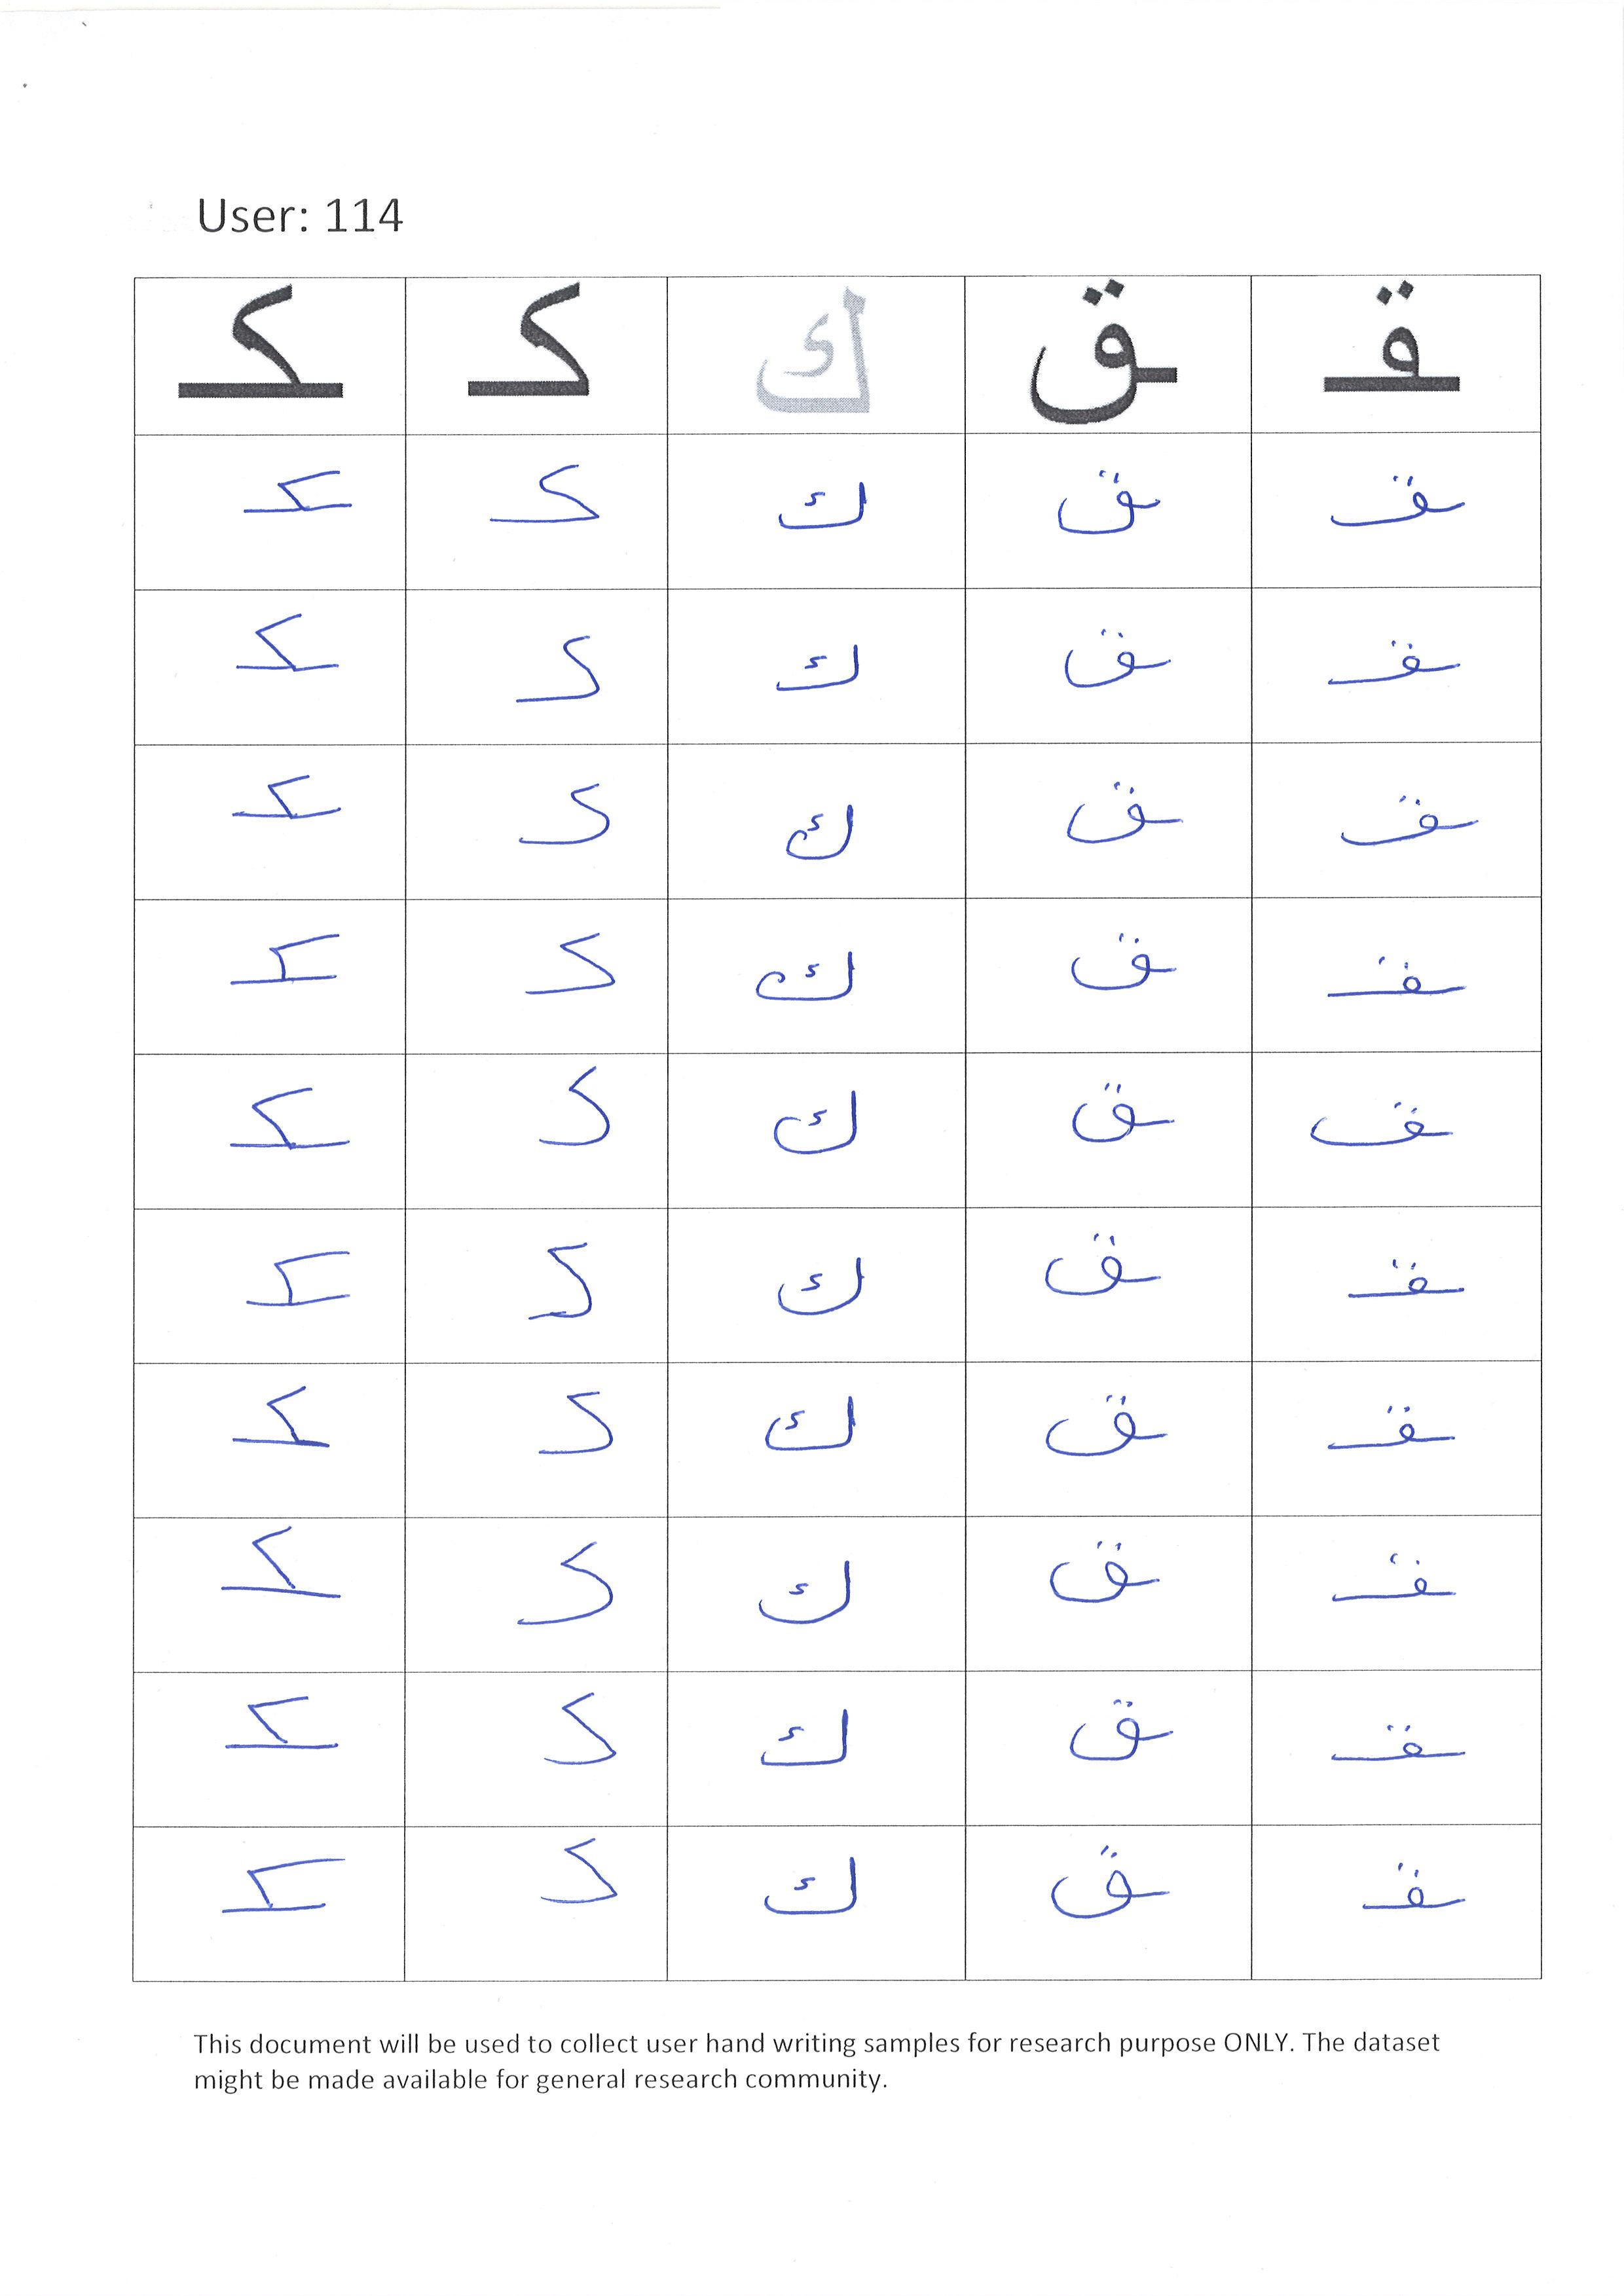 User: 114
ـكـ كـ ك ـق ـقـ
ـكـ كـ ك ـق ـقـ
ـكـ كـ ك ـق ـقـ
ـكـ كـ ك ـق ـقـ
ـكـ كـ ك ـق ـقـ
ـكـ كـ ك ـق ـقـ
ـكـ كـ ك ـق ـقـ
ـكـ كـ ك ـق ـقـ
ـكـ كـ ك ـق ـقـ
ـكـ كـ ك ـق ـقـ
ـكـ كـ ك ـق ـقـ
This document will be used to collect user hand writing samples for research purpose ONLY. The dataset
might be made available for general research community.